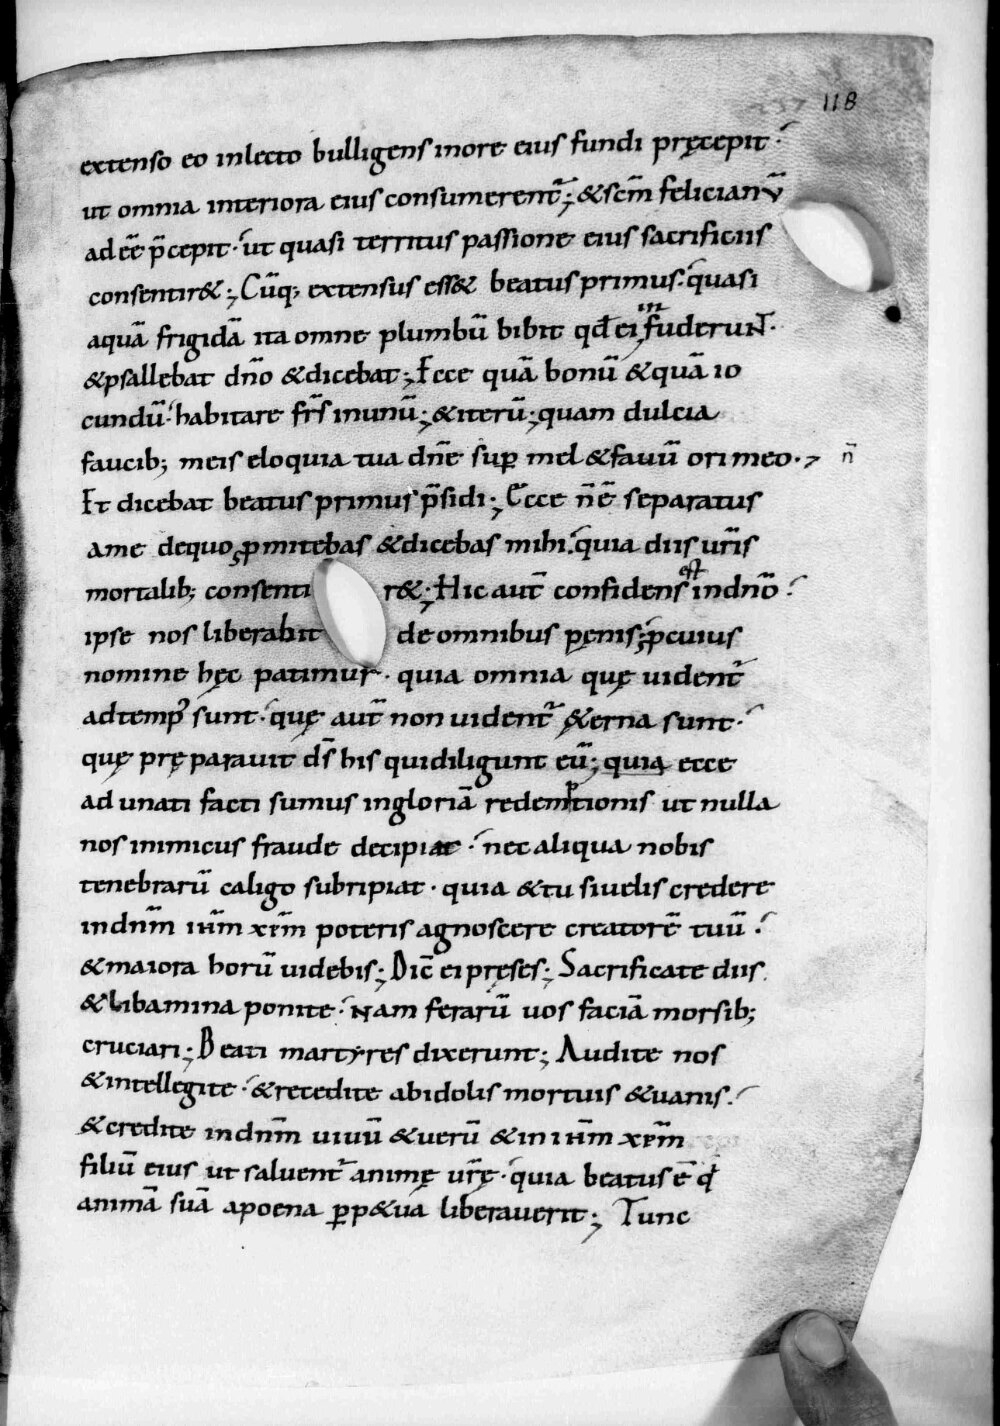 118
extenso eo inlecto bulligens inore eius fundi pręcepit·
ut omnia interiora eius consumerent᷑; &scm̄ felicianv̄
ad eē p̄cepit· ut quasi territus passione eius sacrificiis
consentir&; Cūq; extensus ess& beatus primus· quasi
aquā frigidā ita omne plumbū bibit qđ ei infuderuNt·
&psallebat dn̄o &dicebat; Ecce quā bonū &quā io
cundū· habitare fr̄s inunū; &iterū; quam dulcia
faucib; meis eloquia tua dn̄e suꝑ mel &favū ori meo· n̄
Et dicebat beatus primus p̄sidi; Ecce n̄ē separatus
ame dequo ꝓmitebas &dicebas mihi· quia diis ur̄is
mortalib; consentir&; Hic aut̄ confidens est indn̄o·
ipse nos liberabit de omnibus pęnis; ꝓcuius
nomine hęc patimur· quia omnia quę uident᷑
adtemp᷒ sunt· quę aut̄ non uident᷑ &erna sunt·
quę pręparauit ds̄ his quidiligunt eū; quia ecce
adunati facti sumus ingloriā redemptionis ut nulla
nos inimicus fraude decipiat· nec aliqua nobis
tenebrarū caligo subripiat· quia &tu siuelis credere
indnm̄ ihm̄ xp̄m poteris agnoscere creatorē tuū·
&maiora horū uidebis; Dic̄ ei pręses; Sacrificate diis
&libamina ponite· Nam ferarū uos faciā morsib;
cruciari; Beati martyres dixerunt; Audite nos
&intellegite· &recedite abidolis mortuis &uanis·
&credite indnm̄ uiuū &uerū &in ihm̄ xp̄m
filiū eius ut saluent᷑ animę ur̄ę· quia beatus ē q̇
animā suā apoena ꝑp&uā liberauerit; Tunc